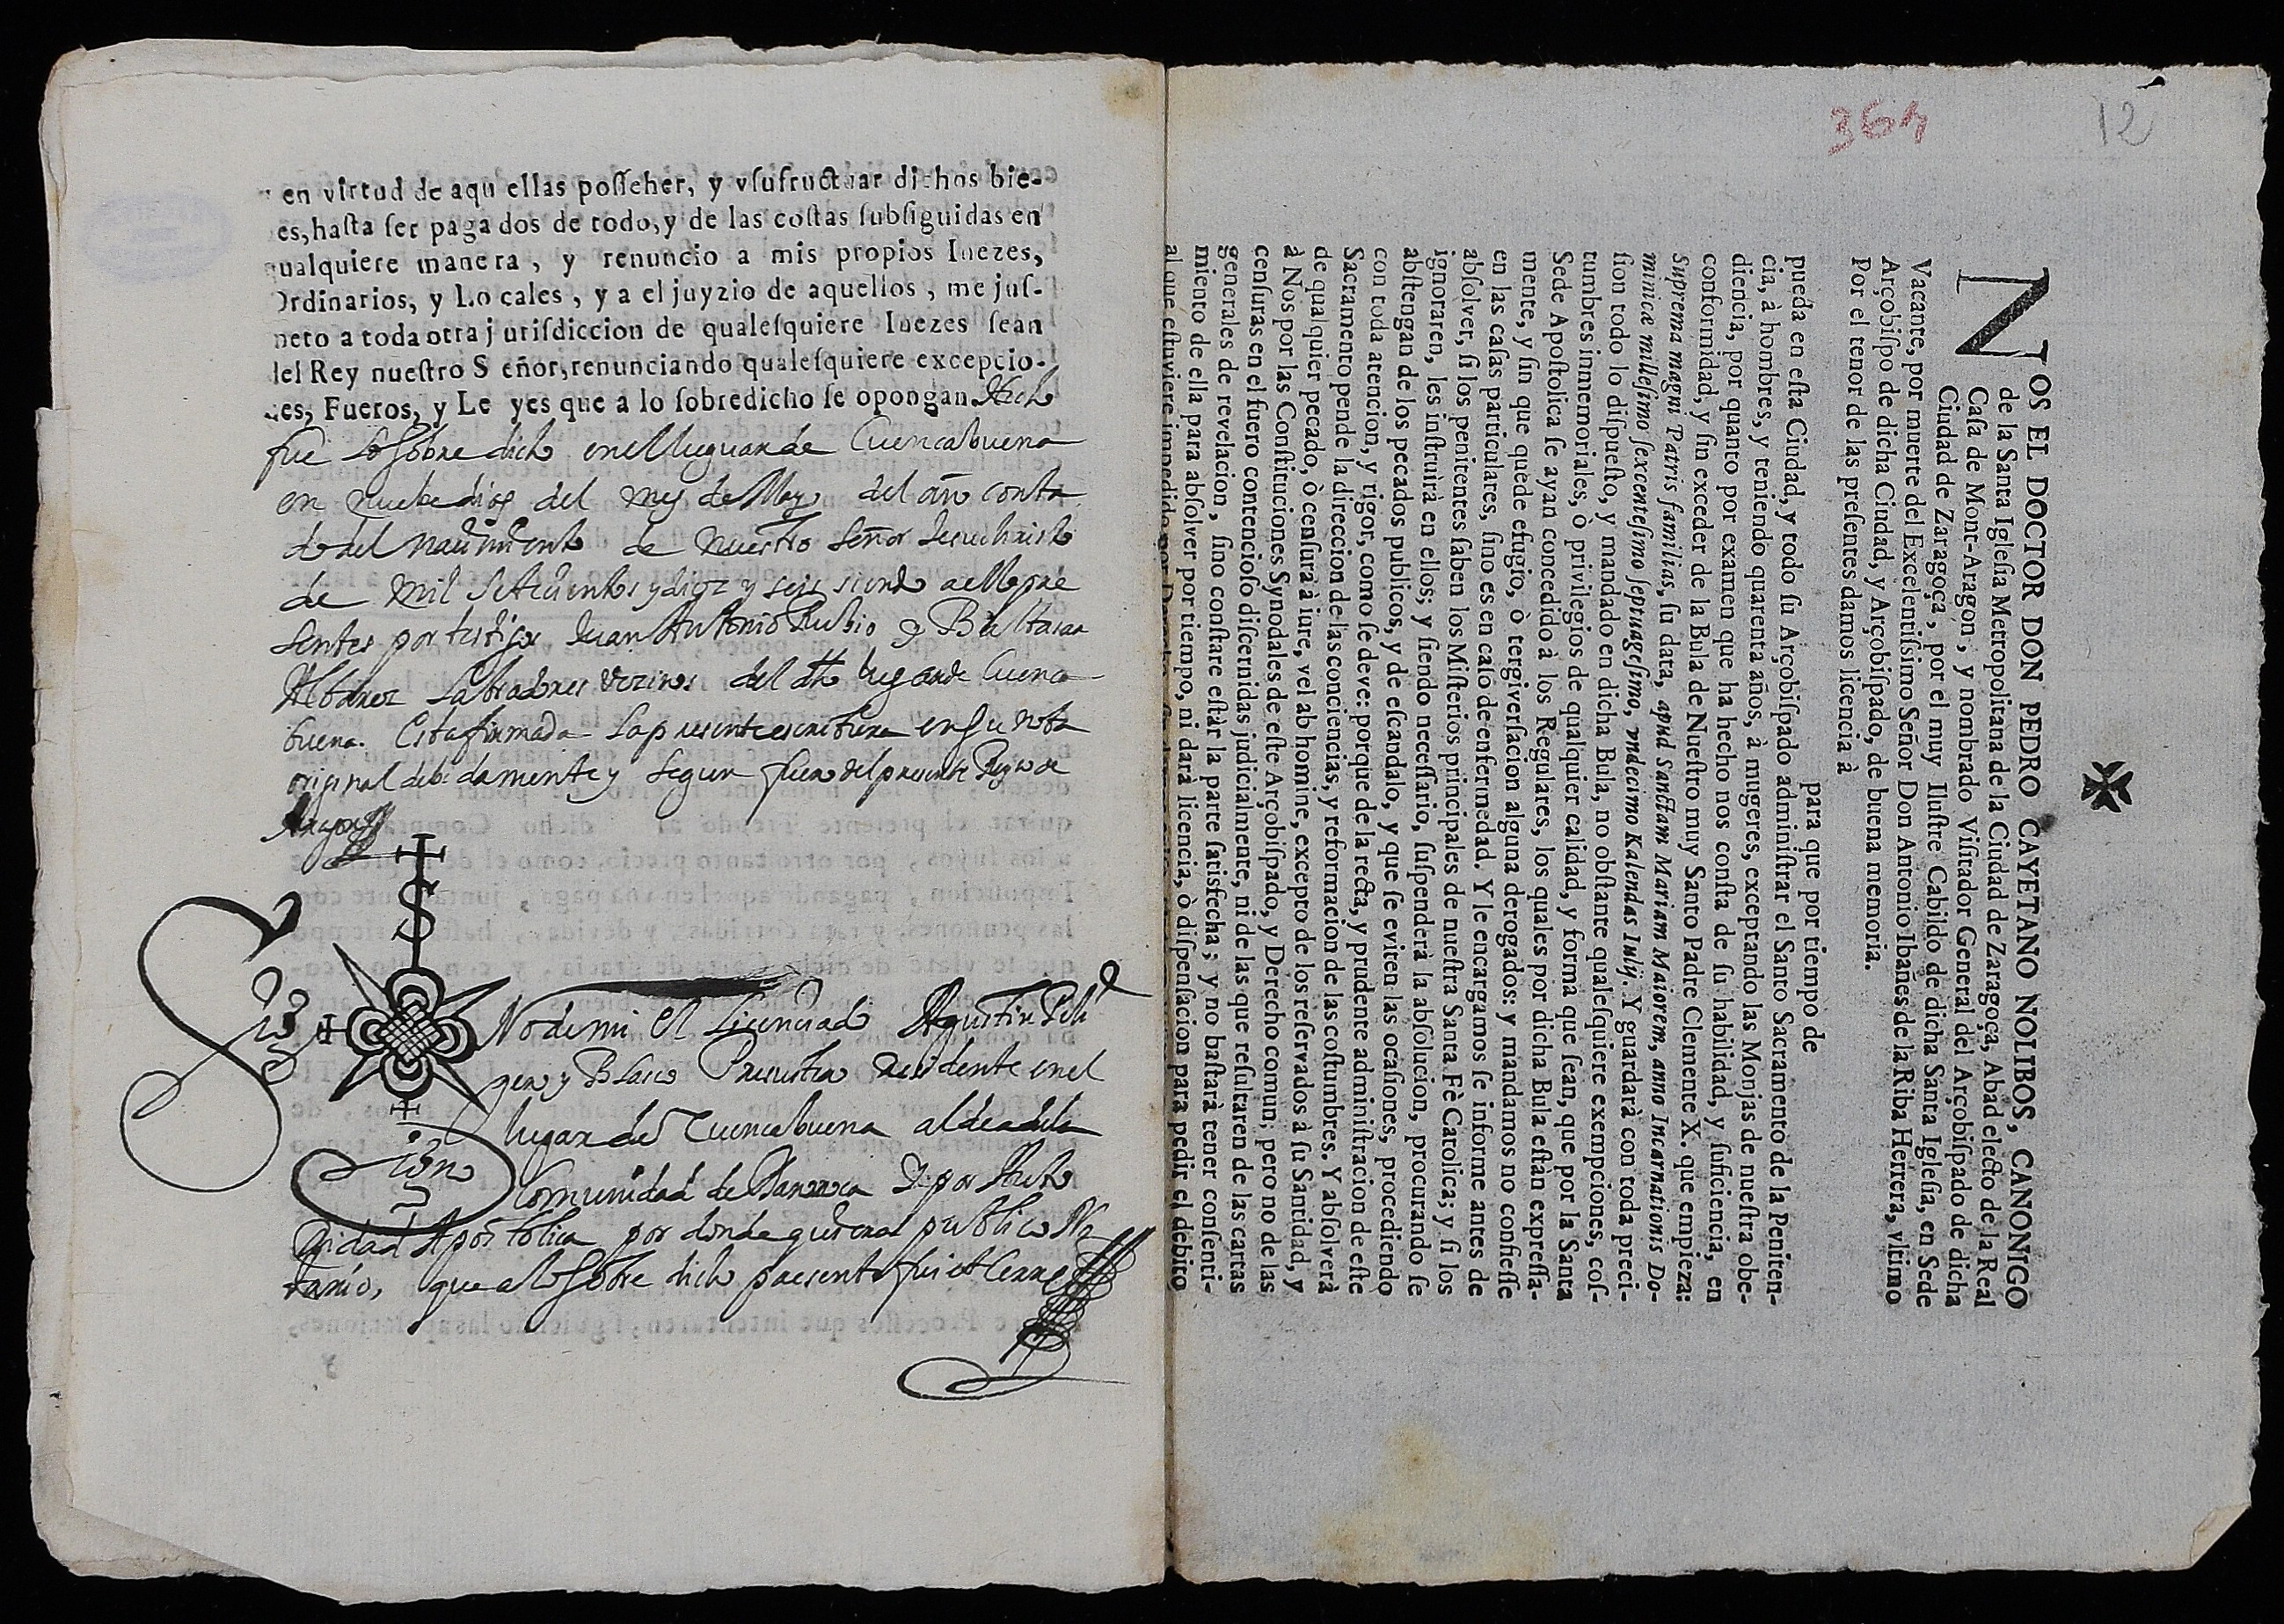 en virtud de aqu ellas posseher, y vsufructuar dichos bie-
es, hasta ser paga dos de todo, y de las costas subsiguidas en
qualquiere manera, y renuncio a mis propios Iuezes,
Ordinarios, y Lo cales, y a el juyzio de aquellos, me jus-
meto a toda otra j urisdiccion de qualesquiere Iuezes sean
del Rey nuestro S eñor, renunciando qualesquiere excepcio-
nes, Fueros, y Le yes que a lo sobredicho se opongan. Hecho
fue lo sobre dicho en el lugar de Cuencabuena
en nuebe dias del mes de Mayo del año conta
do del nacimiento de nuestro Señor Jesuchristo
de mil setecientos y diez y seis siendo a ello pre
sentes por testigos Juan Antonio Rubio y Baltasar
Albarez Labradores vezinos del dho lugar de Cuenca
buena. Esta firmada la presente escritura en su nota
original debidamente y segun fuero del presente Reyno de
Aragon
Sig
no de mi el Licenciado Agustin Peli
ger y Blasco Presbitero residente en el
lugar de Cuencabuena aldea de la
Comunidad de Daroca y por Auto
ridad Apostolica por donde quiera publico No
tario, que a lo sobre dicho presente fui et cerre
364
12
NOS EL DOCTOR DON PEDRO CAYETANO NOLIBOS, CANONIGO
de la Santa Iglesia Metropolitana de la Ciudad de Zaragoça, Abad electo de la Real
Casa de Mont-Aragon, y nombrado Visitador General del Arçobispado de dicha
Ciudad de Zaragoça, por el muy Ilustre Cabildo de dicha Santa Iglesia, en Sede
Vacante, por muerte del Excelentissimo Señor Don Antonio Ibañes de la Riba Herrera, vltimo
Arçobispo de dicha Ciudad, y Arçobispado, de buena memoria.
Por el tenor de las presentes damos licencia à
para que por tiempo de
pueda en esta Ciudad, y todo su Arçobispado administrar el Santo Sacramento de la Peniten-
cia, à hombres, y teniendo quarenta años, à mugeres, exceptando las Monjas de nuestra obe-
diencia, por quanto por examen que ha hecho nos consta de su habilidad, y suficiencia, en
conformidad, y sin exceder de la Bula de Nuestro muy Santo Padre Clemente X. que empieza:
Suprema magni Patris familias, su data, apud Sanctam Mariam Maiorem, anno Incarnationis Do-
minicæ millesimo sexcentesimo septuagesimo, vndecimo Kalendas Iulij. Y guardarà con toda preci-
sion todo lo dispuesto, y mandado en dicha Bula, no obstante qualesquiere exempciones, cos-
tumbres inmemoriales, ò privilegios de qualquier calidad, y forma que sean, que por la Santa
Sede Apostolica se ayan concedido à los Regulares, los quales por dicha Bula estàn expressa-
mente, y sin que quede efugio, ò tergiversacion alguna derogados: y mandamos no confiesse
en las casas particulares, sino es en caso de enfermedad. Y le encargamos se informe antes de
absolver, si los penitentes saben los Misterios principales de nuestra Santa Fè Catolica; y si los
ignoraren, les instruirà en ellos; y siendo necessario, suspenderà la absolucion, procurando se
abstengan de los pecados publicos, y de escandalo, y que se eviten las ocasiones, procediendo
con toda atencion, y rigor, como se deve: porque de la recta, y prudente administracion de este
Sacramento pende la direccion de las conciencias, y reformacion de las costumbres. Y absolverà
de qualquier pecado, ò censura à iure, vel ab homine, excepto de los reservados à su Santidad, y
à Nos por las Constituciones Synodales de este Arçobispado, y Derecho comun; pero no de las
censuras en el fuero contencioso discernidas judicialmente, ni de las que resultaren de las cartas
generales de revelacion, sino constare estàr la parte satisfecha; y no bastarà tener consenti-
miento de ella para absolver por tiempo, ni darà licencia, ò dispensacion para pedir el debito
al que estuviere impedido por